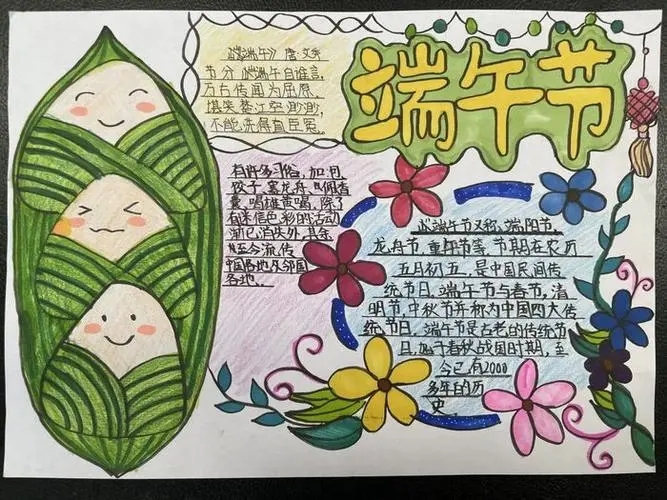 端午节
《端午》唐·文秀
节分端午自谁言,
万古传闻为屈原。
堪笑楚江空渺渺,
不能洗得直臣冤。
有许多习俗,如:包
饺子,赛龙舟,佩香
囊,喝雄黄喝,除了
有迷信色彩的活动
渐已消失外,其余
至今流传
中国各地及邻国
各地。
端午节又称,端阳节,
龙舟节,重午节等,节期在农历
五月初五,是中国民间传
统节日。端午节与春节,清
明节,中秋节并称为中国四大传
统节日。端午节是古老的传统节
日,始于春秋战国时期,至
今已有2000
多年的历
史